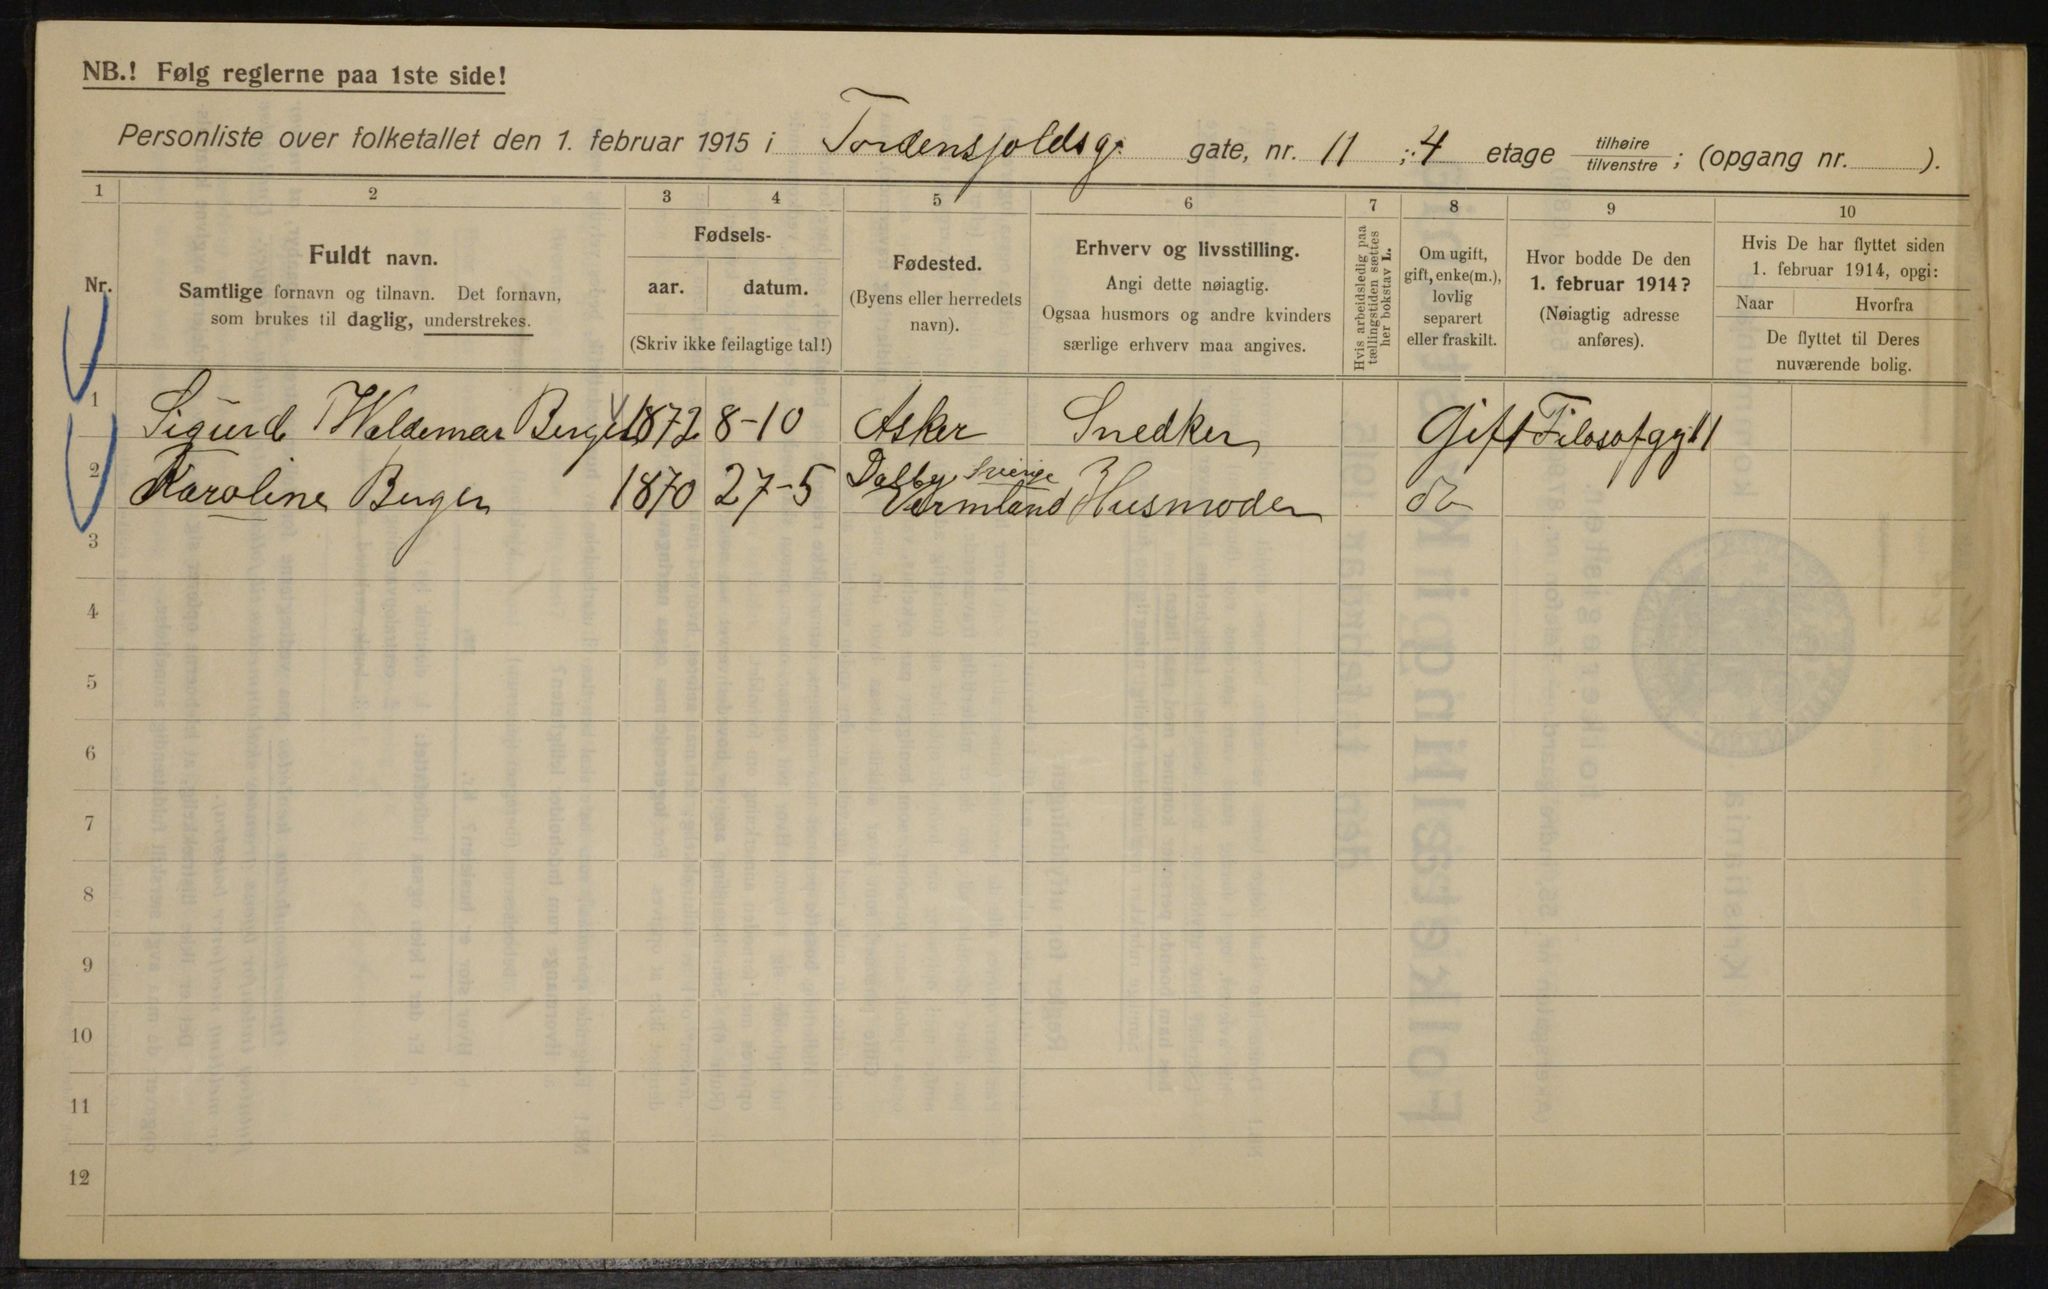 NB.! Følg reglerne paa 1ste side!
Personliste over folketallet den 1. februar 1915 i Tordensjoldsg. gate, nr. 11 ; 4 etage tilhøire / tilvenstre ; (opgang nr. ).
1 2 3 4 5 6 7 8 9 10
Nr.
Fuldt navn.
Samtlige fornavn og tilnavn. Det fornavn,
som brukes til daglig, understrekes.
Fødsels-
aar. datum.
(Skriv ikke feilagtige tal!)
Fødested.
(Byens eller herredets
navn).
Erhverv og livsstilling.
Angi dette nøiagtig.
Ogsaa husmors og andre kvinders
særlige erhverv maa angives.
Hvis arbeidsledig paa
tællingstiden sættes
her bokstav L.
Om ugift,
gift, enke(m.),
lovlig
separert
eller fraskilt.
Hvor bodde De den
1. februar 1914?
(Nøiagtig adresse
anføres).
Hvis De har flyttet siden
1. februar 1914, opgi:
Naar Hvorfra
De flyttet til Deres
nuværende bolig.
1 Sigurd Waldemar Berger 1872 8-10 Asker Snedker Gift Filosofgt 11
2 Karoline Berger 1870 27-5 Dalby Sverige Vermland Husmoder do
3
4
5
6
7
8
9
10
11
12